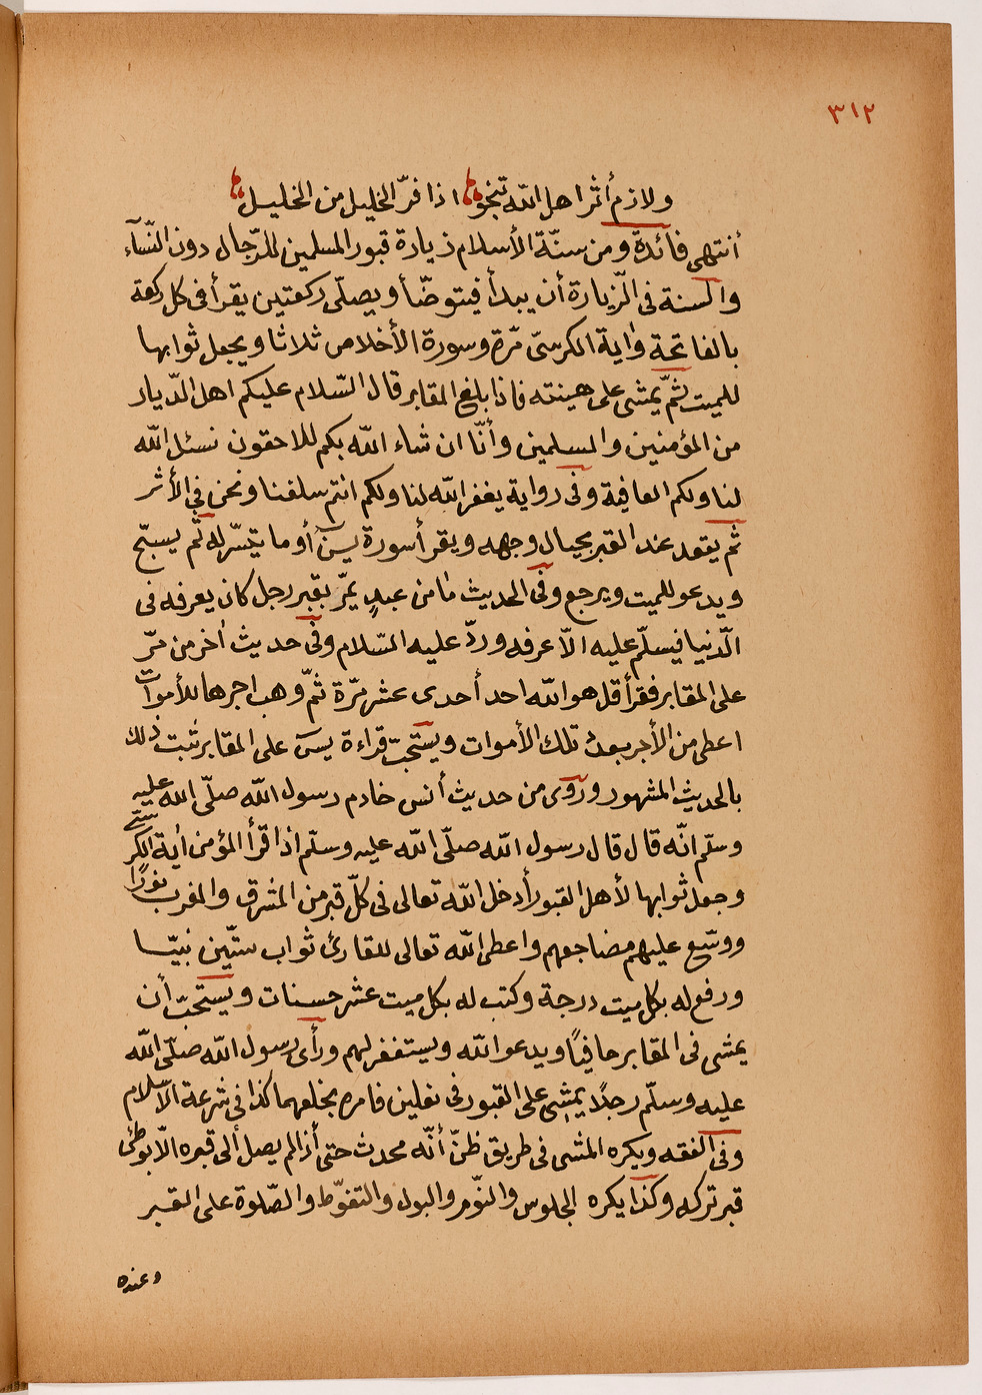 ٣١٢
ولازم أثر اهل الله تنجو اذا فرّ الخليل من الخليل
أنتهى فائدة ومن سنّة الأسلام زيارة قبور المسلمين للرّجال دون النّسآء
والسنة فى الّزيارة أن يبدأ فيتوضّأ ويصلّى ركعتين يقرأ فى كل ركعة
بالفاتحة وٰاية الكرسىّ مّرة وسورة الأخلاص ثلاثا ويجعل ثوابها
للميت ثمّ يمشى على هينته فاذا بلغ المقابر قال السّلام عليكم اهل الدّيار
من المؤمنين والمسلمين وأنّا ان شاء الله بكم للاحقون نسئل الله
لنا ولكم العافية وفى رواية يغفر الله لنا ولكم انتم سلفنا ونحن فى الأثر
ثم يقعد عند القبر بحيال وجهه ويقرأ سورة يسٓ أو ما يتيسّر له ثم يسبّح
ويدعو للميت ويرجع وفى الحديث مٰا من عبدٍ يمرّ بقبر رجل كان يعرفه فى
الّدنيا فيسلّم عليه الاّ عرفه وردّ عليه السّلام وفى حديث اٰخر من مرّ
على المقابر فقرأ قل هو الله احد أحدى عشر مرّة ثمّ وهب اجرها للأموات
اعطى من الأجر بعدد تلك الأموات ويستحبّ قراءة يسٓ على المقابر ثبت ذلك
بالحديث المشهور وروى من حديث أنس خادم رسول الله صلّى الله عليه
وسلّم انّه قال قال رسول الله صلّى الله عليه وسلّم اذا قرأ المؤمن اٰية الكرسىّ
وجعل ثوابها لأهل القبور أدخل الله تعالى فى كلّ قبر من المشرق والمغرب نورًا
ووسّع عليهم مضاجعهم واعطى الله تعالى للقارئ ثواب ستّين نبيّا
ورفع له بكل ميت درجة وكتب له بكل ميت عشر حسنات ويستحبّ أن
يمشى فى المقابر حافيًا ويدعو الله ويستغفر لهم ورأى رسول الله صلّى الله
عليه وسلّم رجلًا يمشى على القبور فى نعلين فامره بخلعهما كذا فى شرعة الأسلام
وفى الفقه ويكره المشى فى طريق ظنّ أنّه محدث حتى أذا لم يصل ألى قبره الاّ بوطئ
قبر تركه وكذا يكره الجلوس والنّوم والبول والتغوّط والصّلوة على القبر
وعنده